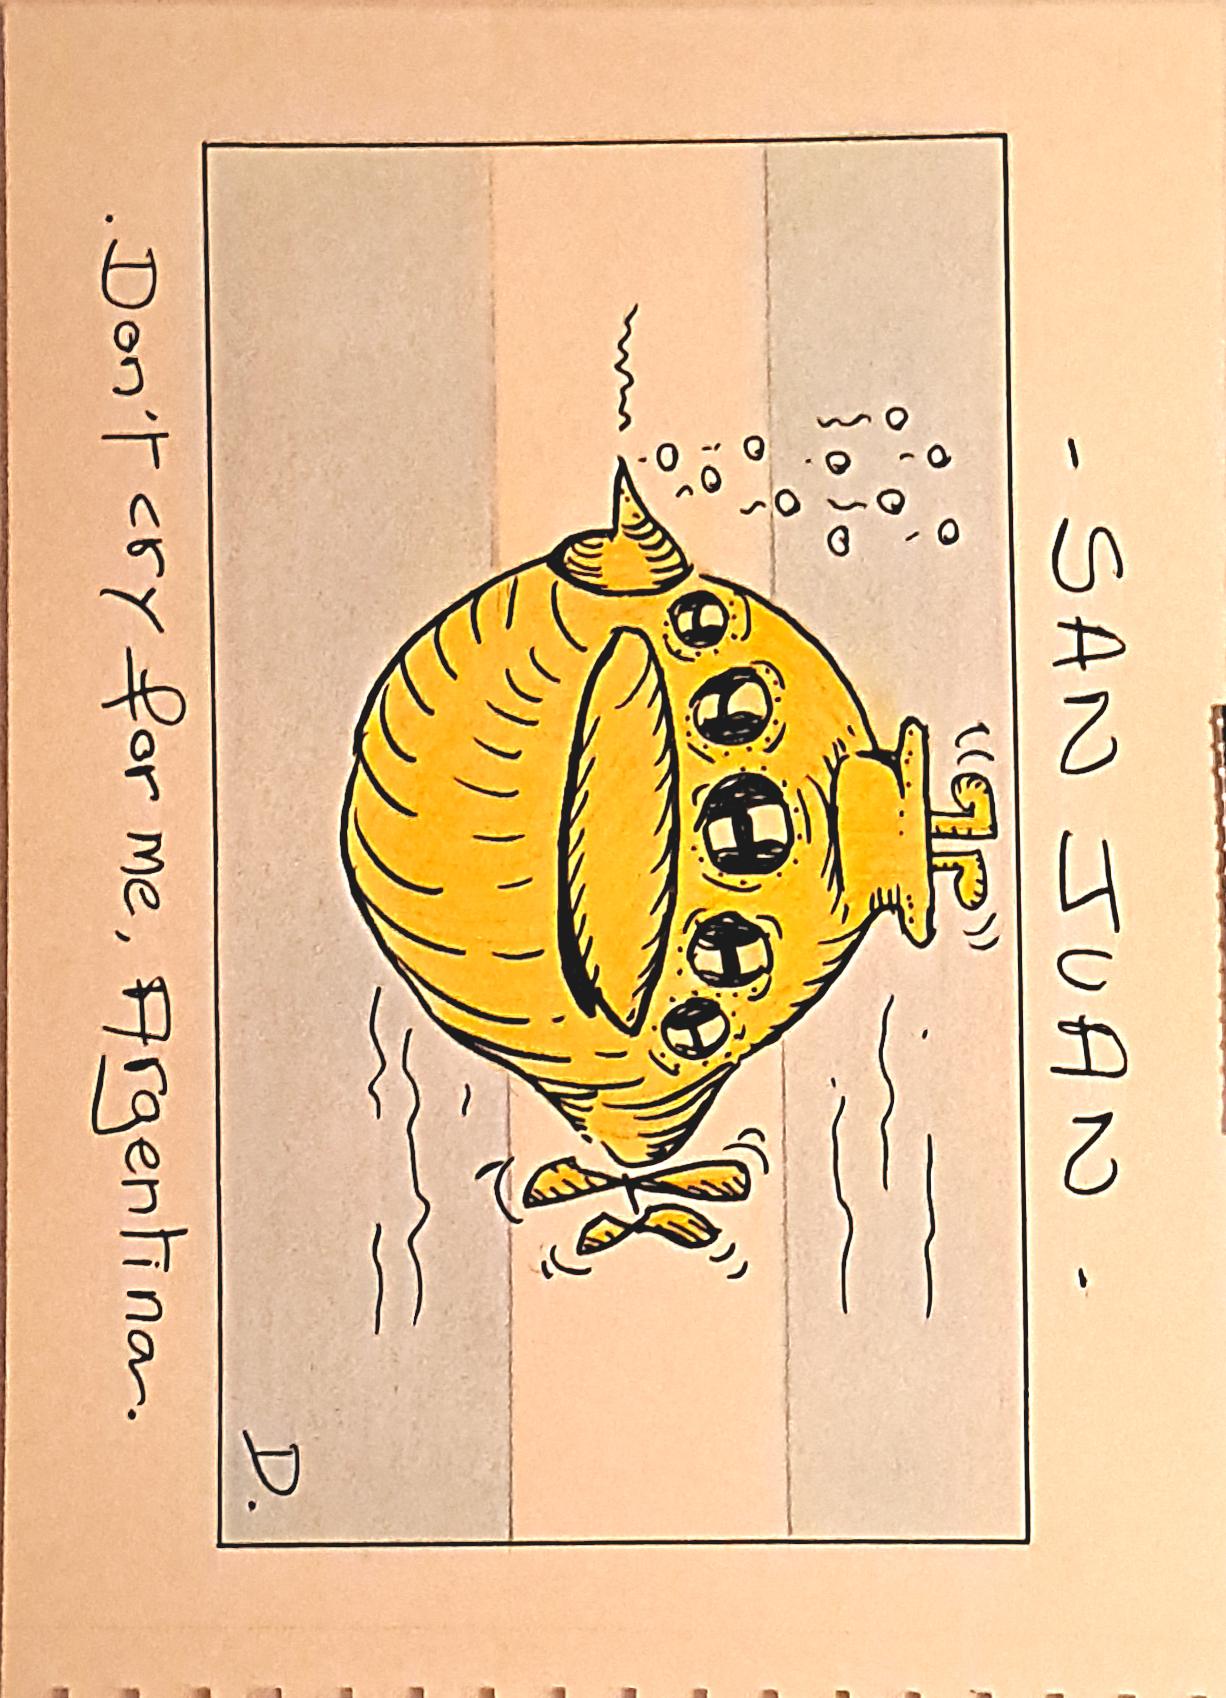 - SAN JUAN -
D.
. Don't cry for me, Argentina.